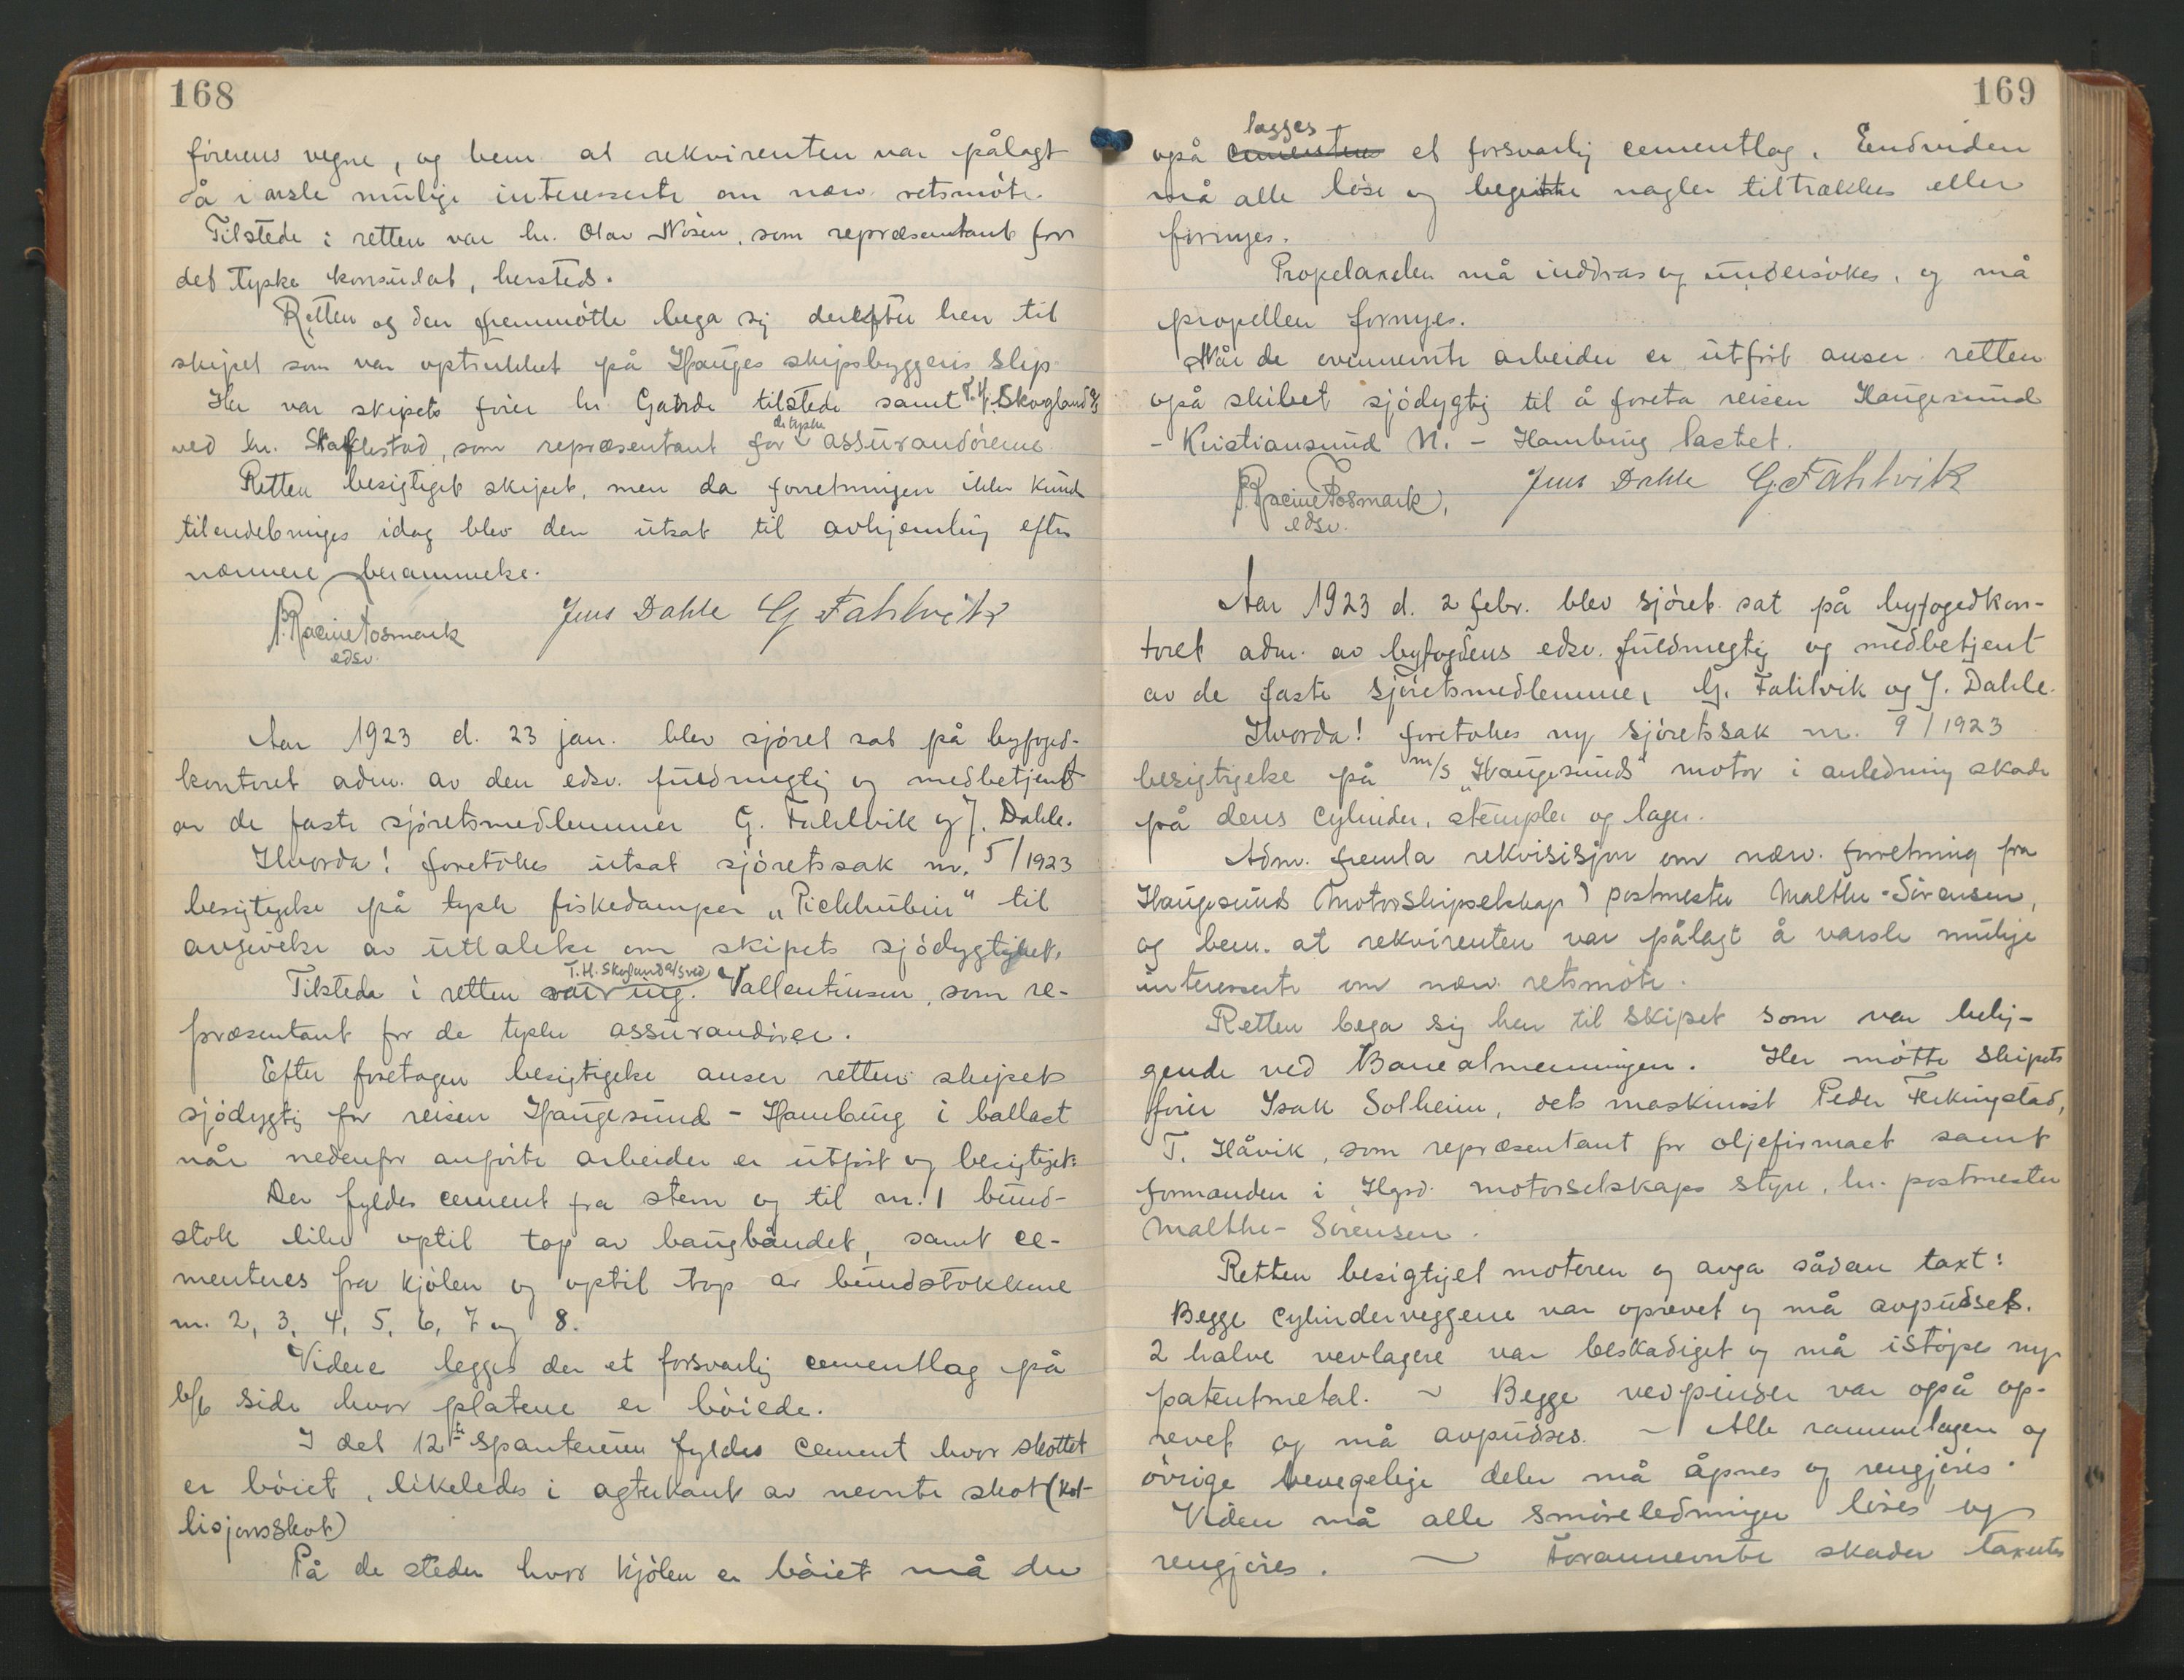 168
förerens vegne, og bem. at rekvirenten var pålagt
å varsle mulige interesserte om nærv. retsmöte.
Tilstede i retten var hr. Olav Nösen, som repræsentant for
det tyske konsulat, hersteds.
Retten og den fremmötte bega sig derefter hen til
skipet som var optrukket på Hauges skipsbyggeris slip.
Her var skipets förer hr. Gaarde tilstede samt T. H. Skogland A/S
ved hr. Staflestad, som repræsentant for de tyske assurandörerne.
Retten besigtiget skipet, men da forretningen ikke kund
tilendebringes idag blev den utsat til avhjemling efter
nærmere berammelse.
P. Racine Fosmark
edsv.
Jens Dahle G Fahlvik
Aar 1923 d. 23 jan. blev sjöret sat på byfoged-
kontoret adm. av den edsv. fuldmegtig og medbetjent
av de faste sjöretsmedlemmer G. Fahlvik og J. Dahle.
Hvorda! foretokes utsat sjöretssak nr. 5/1923
besigtigelse på tysk fiskedamper „Pickhuben" til
avgivelse av uttalelse om skipets sjödygtighet.
Tilstede i retten var T. H. Skogland A/S ved ing. Vallentinsen, som re-
præsentant for de tyske assurandörer.
Efter foretagen besigtigelse anser retten skipet
sjödygtig for reisen Haugesund - Hamburg i ballast
når nedenfor anförte arbeider er utfört og besigtiget:
Der fyldes cement fra stem og til nr. 1 bund-
stok like optil top av baugbåndet, samt ce-
menteres fra kjölen og optil top av bundstokkene
nr. 2, 3, 4, 5, 6, 7 og 8.
Videre legges der et forsvarlig cementlag på
b/b side hvor platene er böiede.
I det 12te spanterum fyldes cement hvor skottet
er böiet, likeledes i agterkant av nevnte skot (kol-
lisjonsskot)
På de steder hvor kjölen er böiet må der
169
også lægges cementeres et forsvarlig cementlag. Endvidere
må alle löse og begitte nagler tiltrækkes eller
fornyes.
Propelaxelen må inddras og undersökes, og må
propellen fornyes.
Når de ovennevnte arbeider er utfört anser retten
også skibet sjödygtig til å foreta reisen Haugesund
- Kristiansund N. - Hamburg lastet.
P. Racine Fosmark,
edsv.
Jens Dahle G Fahlvik
Aar 1923 d. 2 febr. blev sjöret sat på byfogedkon-
toret adm. av byfogdens edsv. fuldmegtig og medbetjent
av de faste sjöretsmedlemmer G. Fahlvik og J. Dahle.
Hvorda! foretokes ny sjöretssak nr. 9/1923
besigtigelse på m/s „Haugesunds" motor i anledning skade
på dens cylinder, stempler og lager.
Adm. fremla rekvisisjon om nærv. forretning fra
Haugesund Motorskipselskap) postmester Malthe-Sörensen,
og bem. at rekvirenten var pålagt å varsle mulige
interesserte om nærv. retsmöte.
Retten bega sig hen til skipet som var belig-
gende ved Banealmenningen. Her mötte skipets
förer Isak Solheim, dets maskinist Peder Ferkingstad,
T. Håvik, som repræsentant for oljefirmaet samt
formanden i Hgsd. motorselskaps styre, hr. postmester
Malthe-Sörensen.
Retten besigtiget motoren og avga sådan taxt:
Begge cylinderveggene var oprevet og må avpudses.
2 halve vevlagere var beskadiget og må istöpes ny
patentmetal. ~ Begge vevpinser var også op-
revet og må avpudses. ~ Alle rammelagere og
övrige bevegelige deler må åpnes og rengjöres.
Videre må alle smöreledninger löses og
rengjöres. ~ Forannevnte skader taxertes